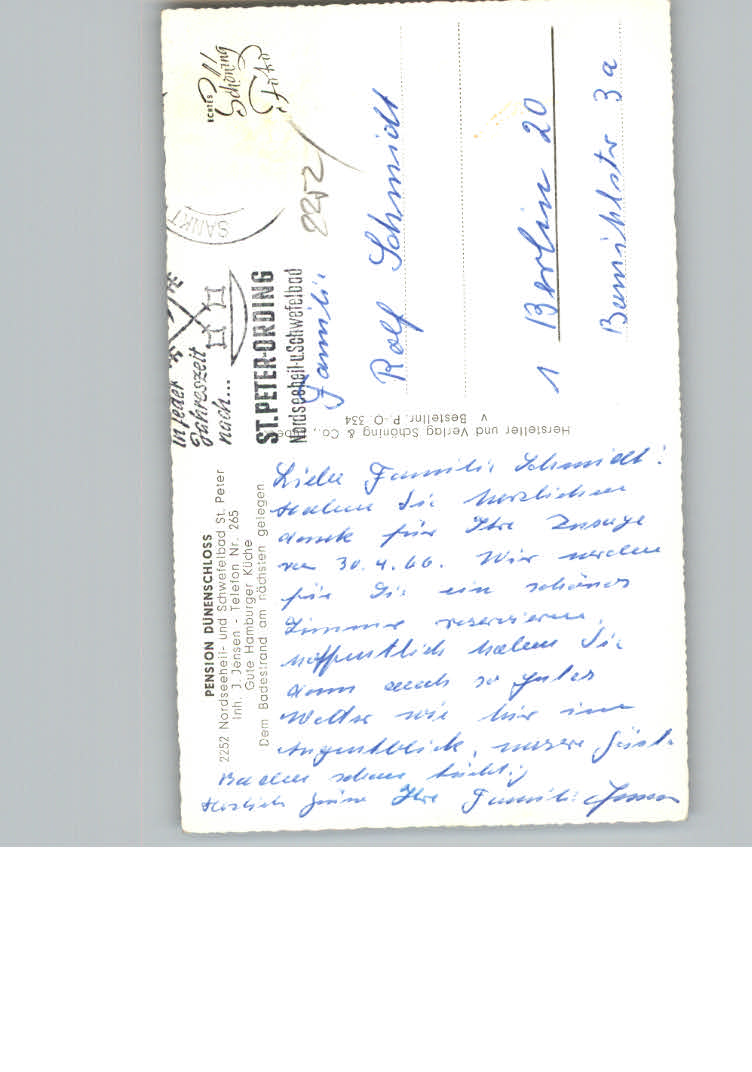 PENSION DÜNENSCHLOSS
2252 Nordseeheil- und Schwefelbad St. Peter
Inh. J. Jensen - Telefon Nr. 265
Gute Hamburger Küche
Dem Badestrand am nächsten gelegen
Liebe Familie Schmidt!
Haben Sie herzlichen
Dank für Ihre Zusage
30.4.66. Wir werden
für Sie ein schönes
Zimmer reservieren.
Hoffentlich haben Sie
dann auch so gutes
Wetter wie hier im
Augenblick, unsere Gäste
Baden schon tüchtig
Herzliche Grüße Ihre Familie Jensen
Hersteller und Verlag Schöning & Co.,
v Bestellnr. P.-O. 334
In jeder
Jahreszeit
nach...
ST. PETER-ORDING
Nordseeheil-u.Schwefelbad
SANKT
ECHTES
Schöning
Foto
2252
Familie
Rolf Schmidt
1 Berlin 20
3a